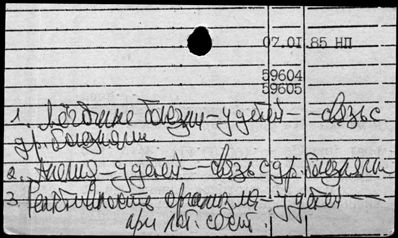 07.01.85 НП
59604
59605
1. Лёгочные болезни - у детей - - связь с
др. болезнями
2. Анемия - у детей - - связь с др. болезнями
3. Реактивность организма - у детей - -
при пат. сост.